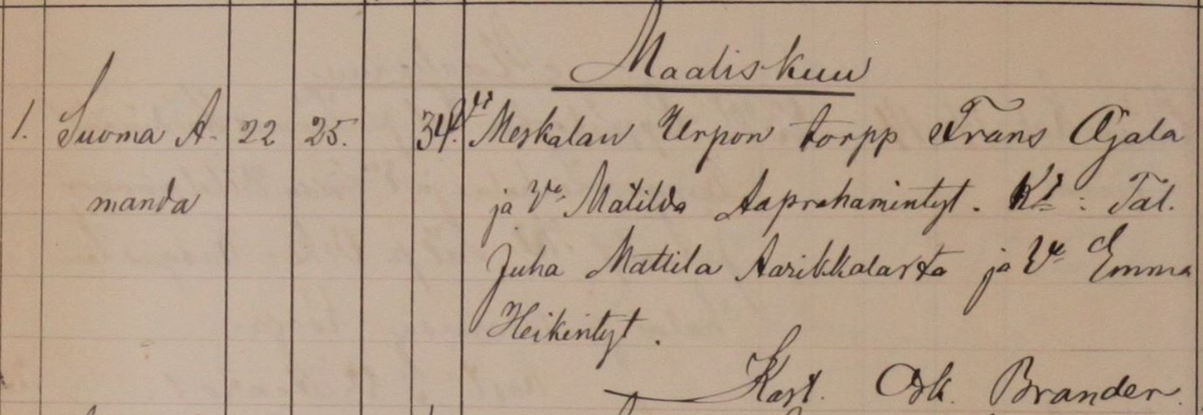 Maaliskuu
1. Suoma A- 22 25. 34. Meskalan Urpon torpp Frans Ojala
manda ja Vo Matilda Aaprahamintyt. Kt: Tal.
Juha Mattila Aarikkalasta ja Vo Emma
Heikintyt.
Kast. Osk. Brander.